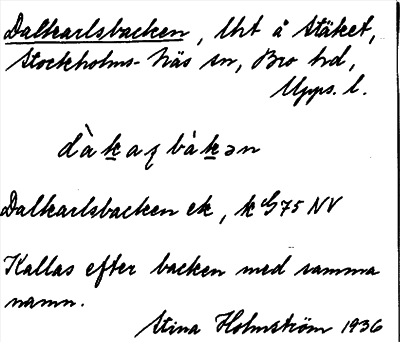 Dalkarlsbacken, lht å Stäket,
Stockholms-Näs sn, Bro hd,
Upps. l.
dàk̲aɋbàk̲ən
Dalkarlsbacken ek, k G75 NV
Kallas efter backen med samma
namn.
Stina Holmström 1936